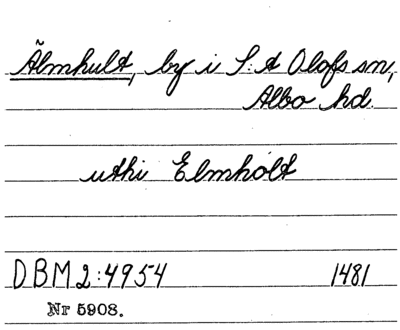 Älmhult, by i S:t Olofs sn,
Albo hd.
uthi Elmholt
DBM 2:4954 1481
Nr 5908.